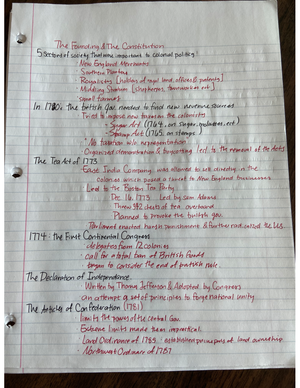 The Founding & The Constitution
5 Sectors of society that were important to colonial politics:
New England Merchants
Southern Planters
Royalists [holders of royal land, offices & patents]
Middling Stratum [shopkeepers, tradesmen, ect.]
small farmers
In 1760s, the british gov. needed to find new revenue sources
Tried to impose new taxes on the colonists
Sugar Act (1764, on sugar, molasses, ect)
Stamp Act (1765, on stamps)
"No taxation w/o representation"
Organized demonstration & boycotting led to the removal of the Acts
The Tea Act of 1773
East India Company was allowed to sell directly in the
colonies which posed a threat to New England businessmen
Lead to the Boston Tea Party
Dec 16, 1773 Led by Sam Adams
Threw 342 chests of tea overboard
Planned to provoke the british gov.
Parliment enacted harsh punishment & further radicalized the U.S.
1774: The First Continental Congress
delegates from 12 colonies
call for a total ban of British goods
began to consider the end of british rule
The Declaration of Independence
Written by Thomas Jefferson & Adopted by Congress
an attempt @ set of principles to forge national unity
The Articles of Confederation (1781)
limits the powers of the central Gov.
Extreme limits made them impractical
Land Ordinance of 1785: established principles of land ownership
Northwest Ordinance of 1787